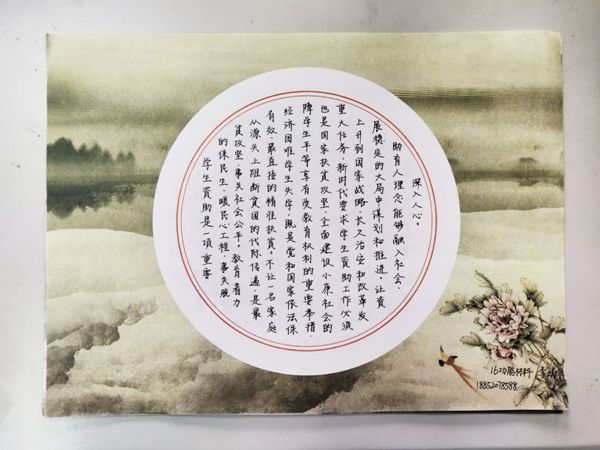 学生资助是一项重要
的保民生、暖民心工程,事关脱
贫攻坚,事关社会公平。教育着力
从源头上阻断贫困的代际传递,是最
有效、最直接的精准扶贫。不让一名家庭
经济困难学生失学,既是党和国家依法保
障学生平等享有受教育权利的重要举措,
也是国家扶贫攻坚、全面建设小康社会的
重大任务。新时代要求学生资助工作必须
上升到国家战略、长久治安和改革发
展稳定的大局中谋划和推进。让资
助育人理念能够融入社会、
深入人心。
16功能材料 李
18352078588